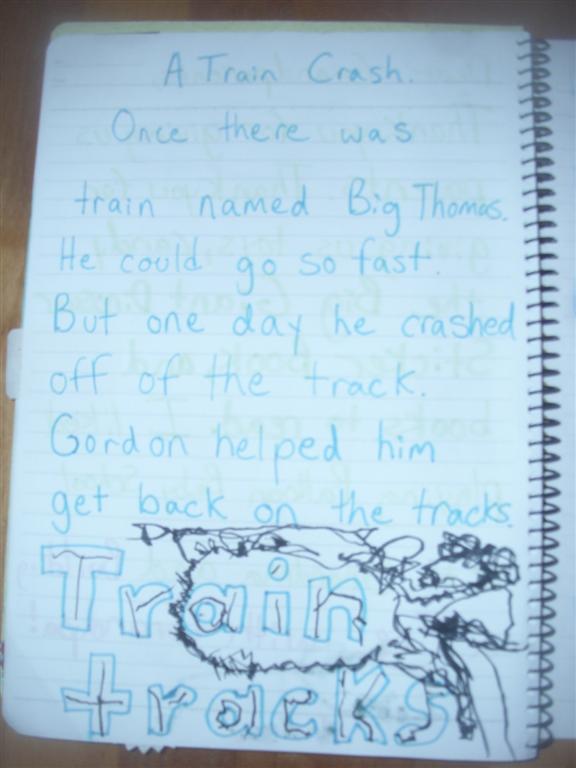 A Train Crash.
Once there was
train named Big Thomas.
He could go so fast.
But one day he crashed
off of the track.
Gordon helped him
get back on the tracks.
Train
tracks